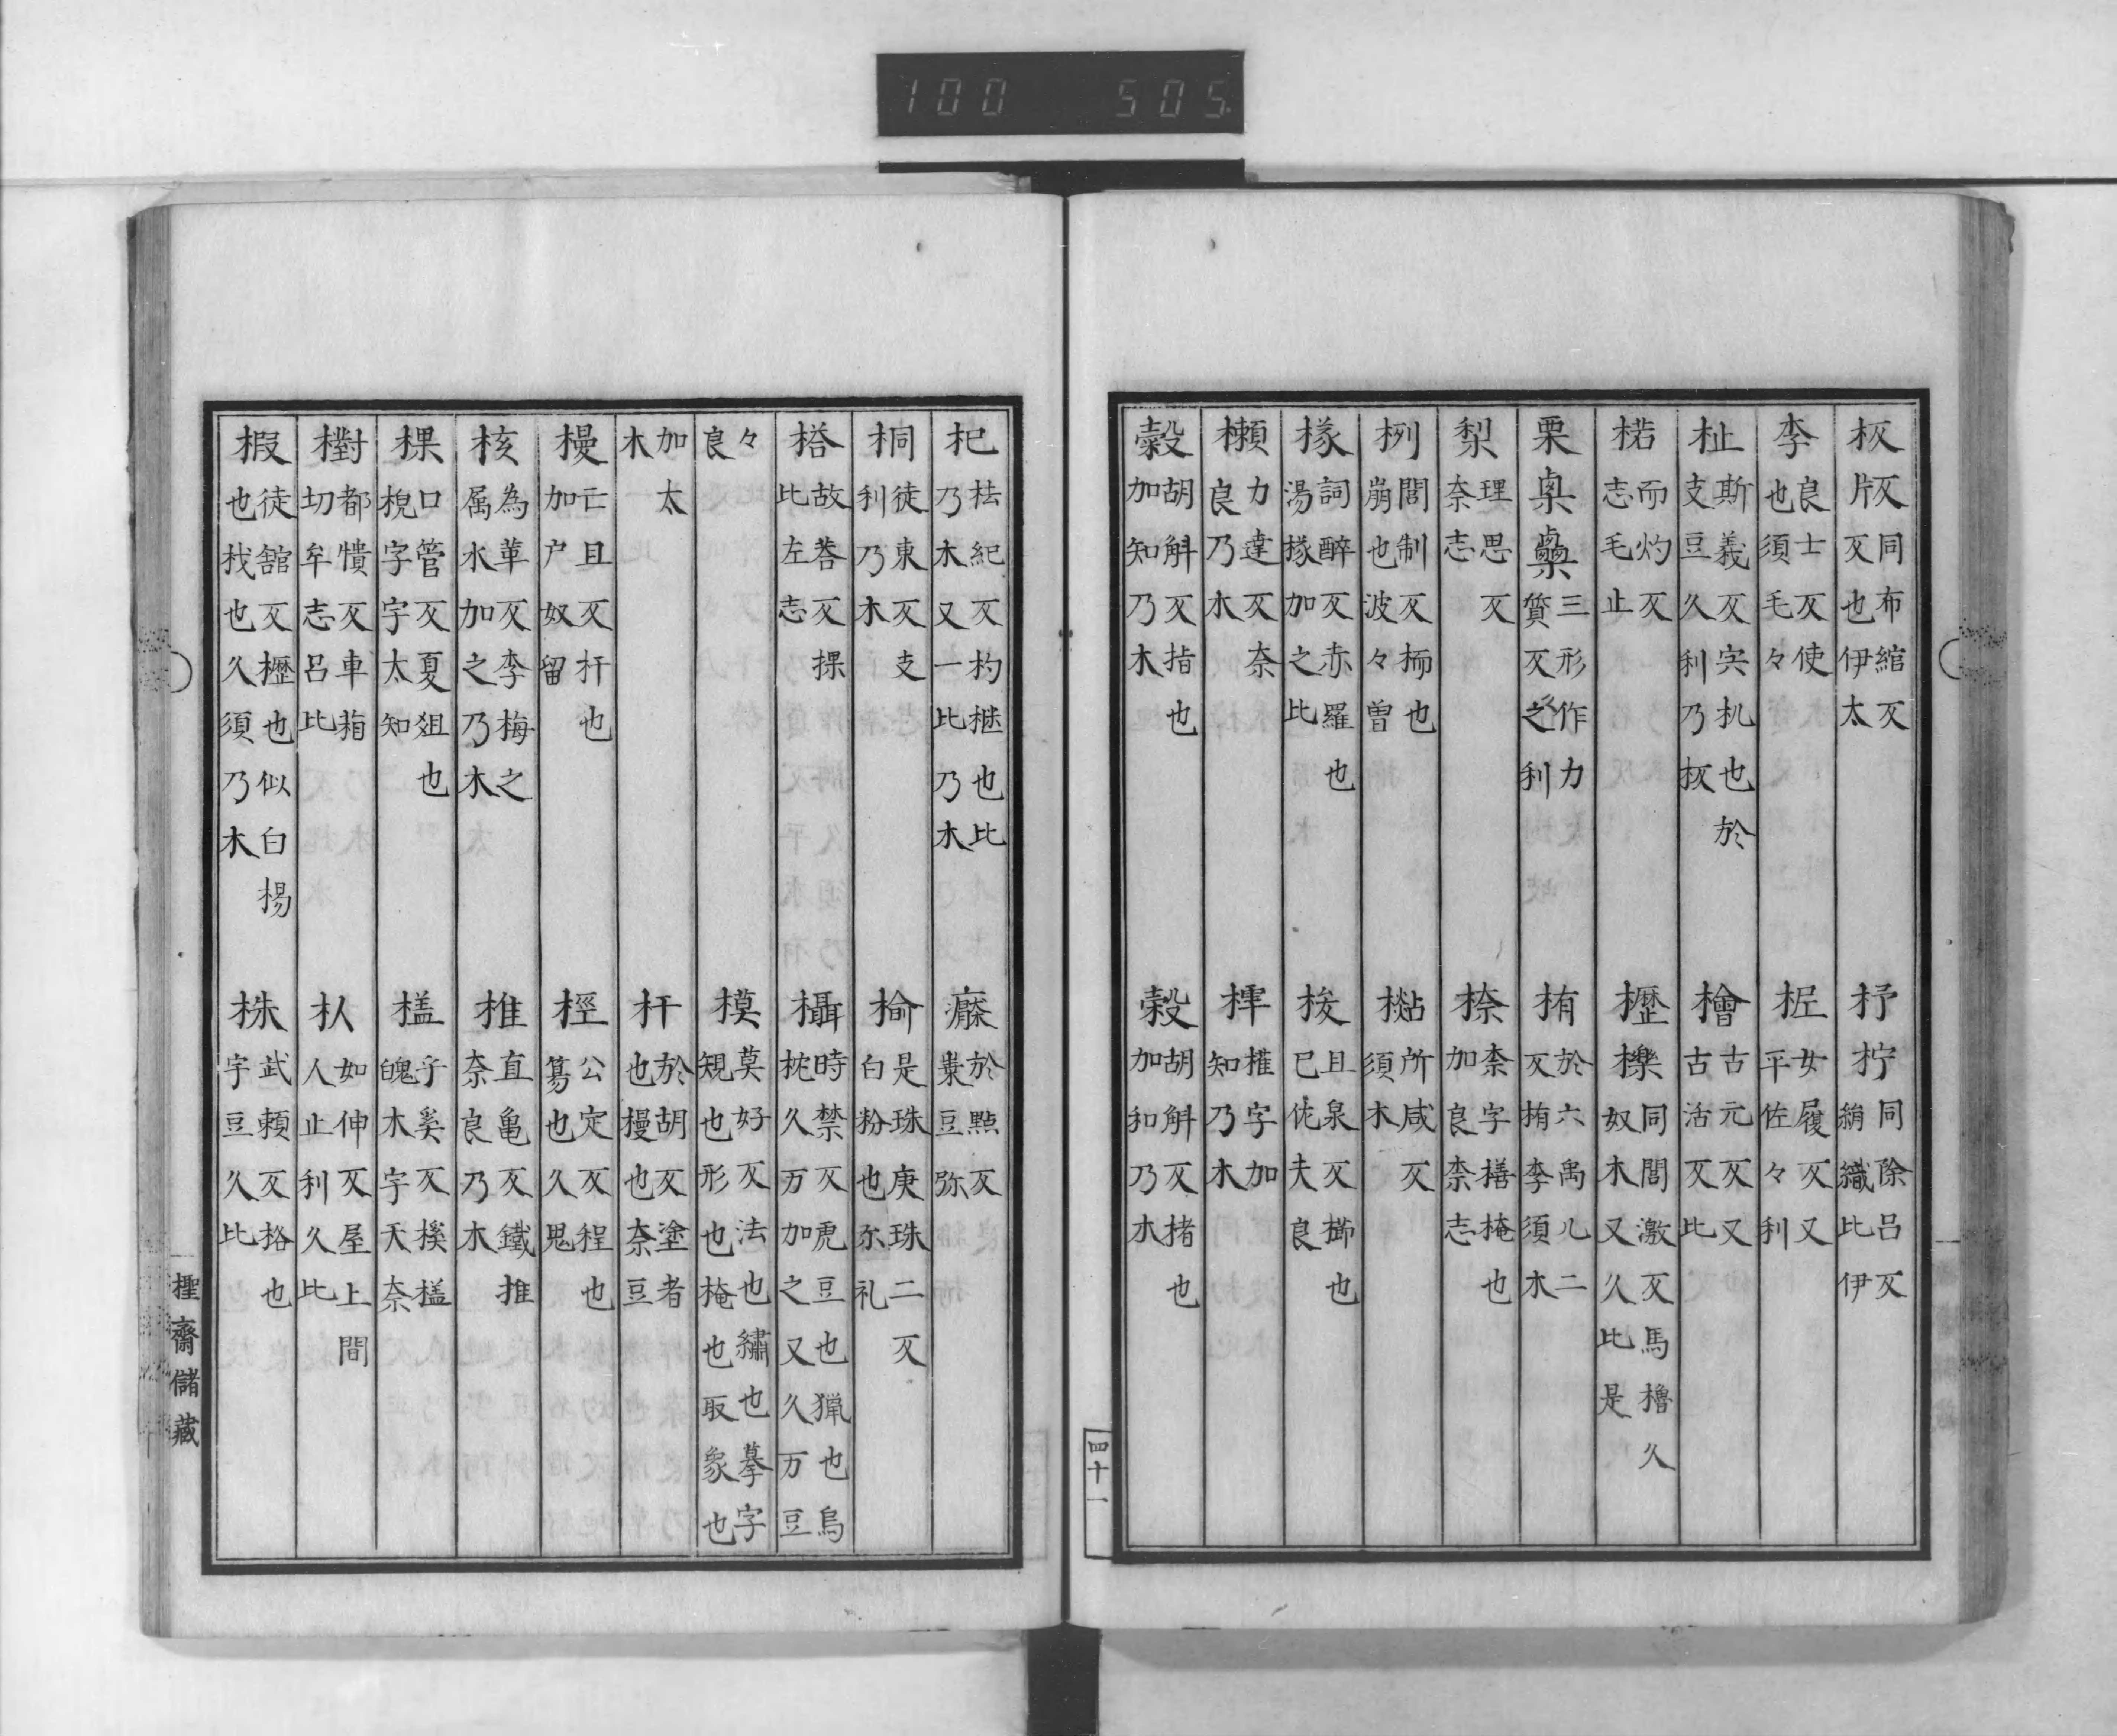 板 版 同布綰反 反也伊太
杼 柠 同除呂反 絹織比伊
李 良士反使 也須毛々
柅 女履反又 平佐々利
杫 斯義反实机也於 支豆久利乃板
檜 古元反又 古活反比
楉 而灼反 志毛止
櫪 櫟 同閭激反馬櫓久 奴木又久比是
栗 㮚 三形作力 質反久之利
栯 於六禹九二 反栯李須木
梨 理思反 奈志
㮈 柰字掩也 加良柰志
栵 閭制反栭也 崩也波々曽
所咸反 須木
檖 詞醉反赤羅也 湯檖加之比
梭 且泉反櫛也 已佐夫良
櫴 力達反奈 良乃木
樟 権字加 知乃木
穀 胡斛反指也 加知乃木
穀 胡斛反楮也 加和乃木
四十一
杞 袪紀反杓継也比 乃木又一比乃木
於點反 豆弥
桐 徒東反支 利乃木
榆 是珠庚珠二反 白粉也尓礼
榙 故荅反 比左志
欇 時禁反虎豆也猟也烏 枕久万加之又久万豆
々 良
模 莫好反法也繡也摹字 規也形也掩也取象也
加太 木
杆 於胡反塗者 也槾也奈豆
槾 亡旦反杆也 加戸奴留
桱 公定反程也 簜也久恖
核 為革反李梅之 属水加之乃木
椎 直亀反鐵推 奈良乃木
棵 口管反夏俎也 梡字字太知
榼 乎奚反榼 木字天奈
樹 都憒反車箱 切牟志呂比
杁 如伸反屋上間 人止利久比
椵 徒舘反櫪也似白楊 也栈也久須乃木
株 武頼反格也 宇豆久比
齋儲藏